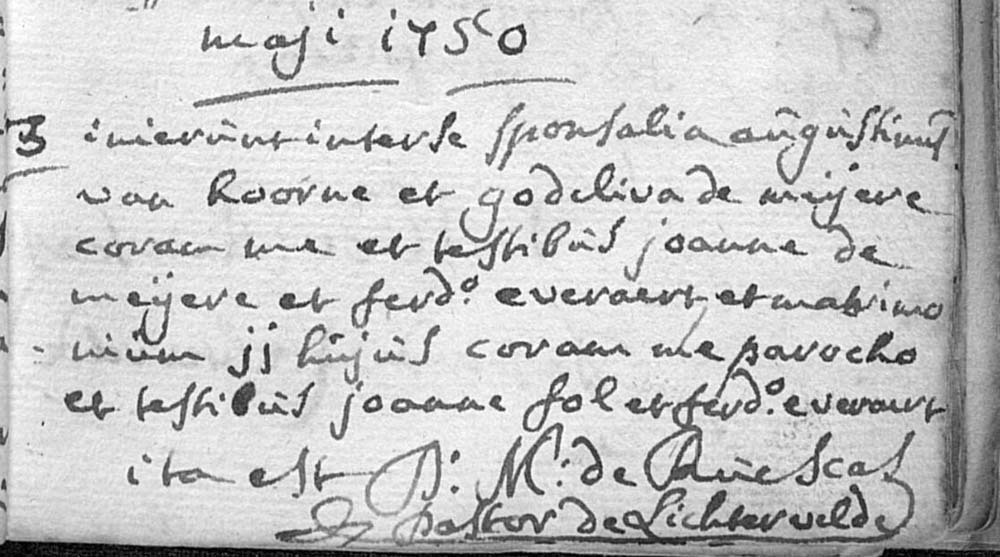 maji 1750
3 inierunt inter se sponsalia augustinus
van hoorne et godeliva de meijere
coram me et testibus joanne de
meijere et ferd.o everaert et matrimo
nium jj hujus coram me parocho
et testibus joanne sol et ferd.o everaert
ita est J: M: de
pastor de Lichtervelde